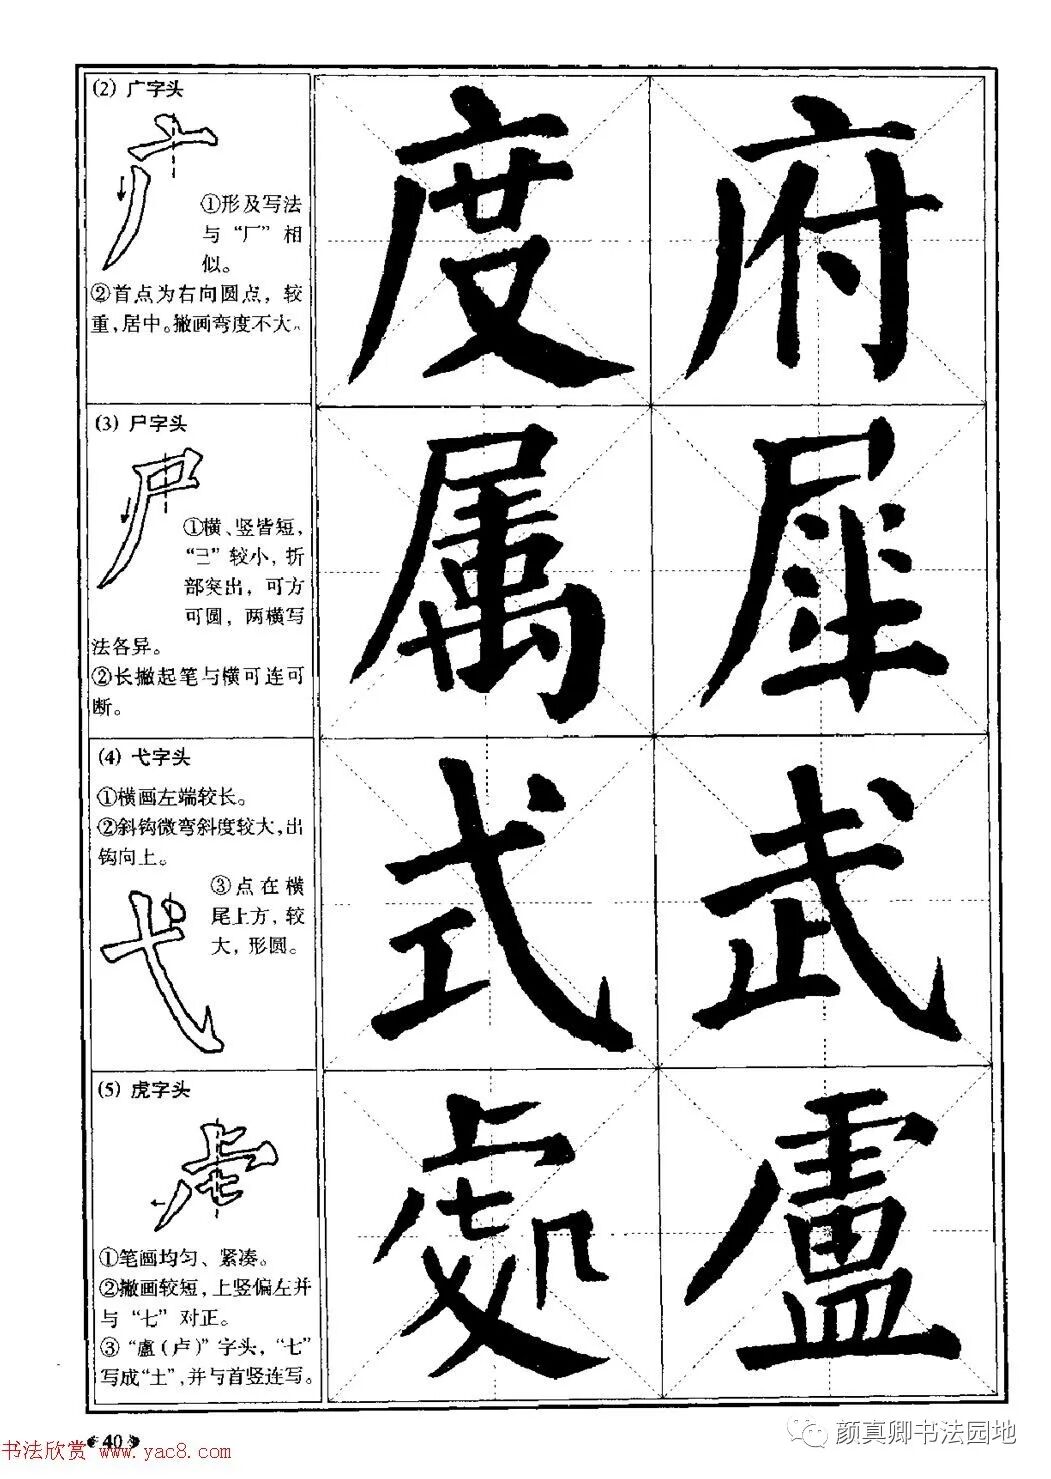 (2) 广字头
①形及写法
与“厂”相
似。
②首点为右向圆点，较
重，居中。撇画弯度不大。
度 府
(3) 尸字头
①横、竖皆短，
“彐”较小，折
部突出，可方
可圆，两横写
法各异。
②长撇起笔与横可连可
断。
属 犀
(4) 弋字头
①横画左端较长。
②斜钩微弯斜度较大，出
钩向上。
③点在横
尾上方，较
大，形圆。
式 武
(5) 虎字头
①笔画均匀、紧凑。
②撇画较短，上竖偏左并
与“七”对正。
③“盧(卢)”字头，“七”
写成“土”，并与首竖连写。
處 盧
40
书法欣赏 www.yac8.com
颜真卿书法园地